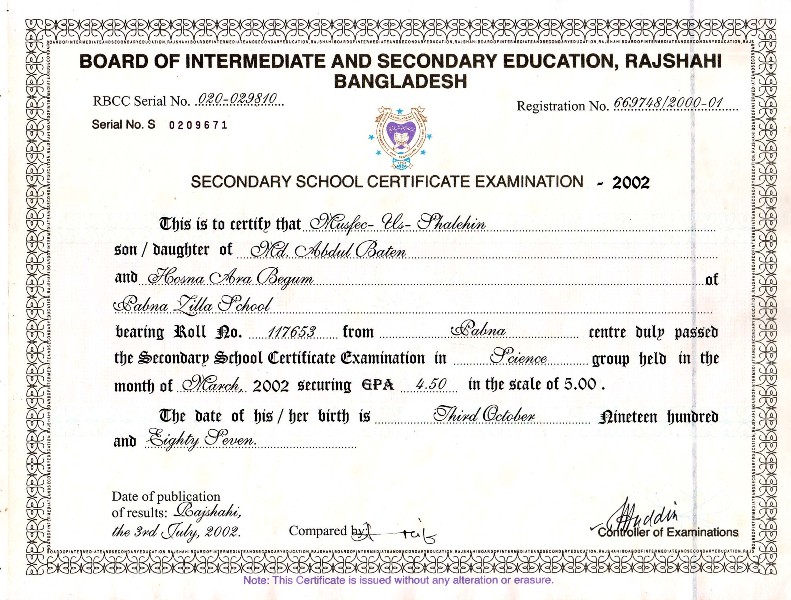 BOARD OF INTERMEDIATE AND SECONDARY EDUCATION, RAJSHAHI
BANGLADESH
RBCC Serial No. 020-029810
Registration No. 669748/2000-01
Serial No. S 0209671
SECONDARY SCHOOL CERTIFICATE EXAMINATION - 2002
This is to certify that Musfec- Us- Shalehin
son / daughter of Md. Abdul Baten
and Hosna Ara Begum of
Pabna Zilla School
bearing Roll No. 117653 from Pabna centre duly passed
the Secondary School Certificate Examination in Science group held in the
month of March, 2002 securing GPA 4.50 in the scale of 5.00 .
The date of his / her birth is Third October Nineteen hundred
and Eighty Seven.
Date of publication
of results: Rajshahi,
the 3rd July, 2002.
Compared by
Controller of Examinations
Note: This Certificate is issued without any alteration or erasure.